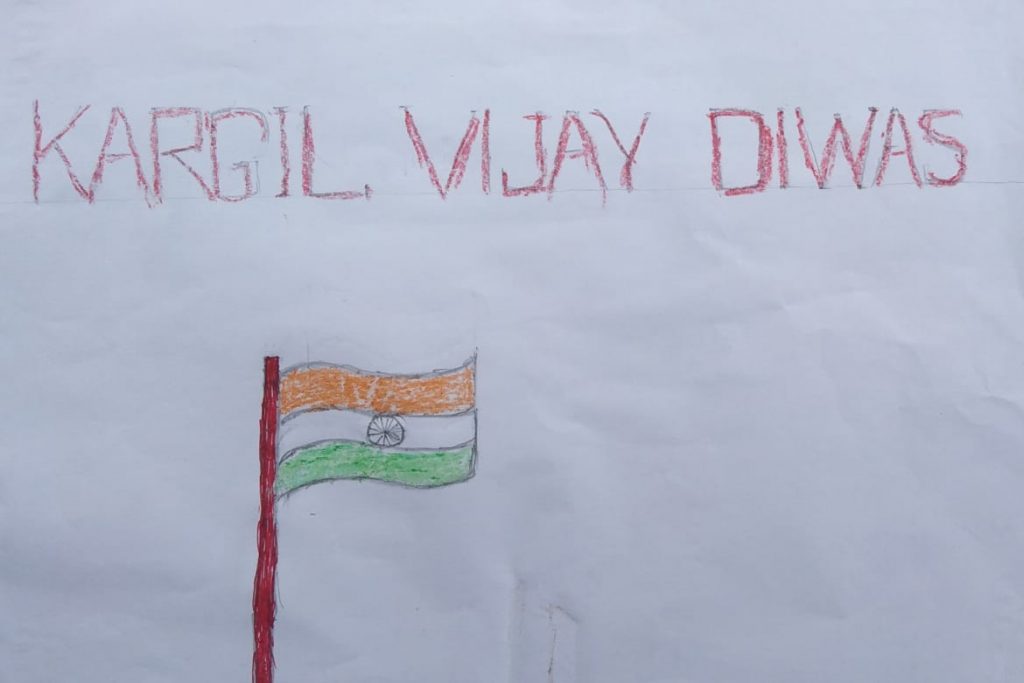 KARGIL VIJAY DIWAS